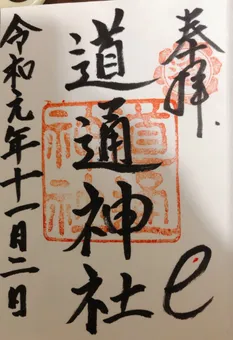 奉拝
道通神社
令和元年十一月二日
道通
神社